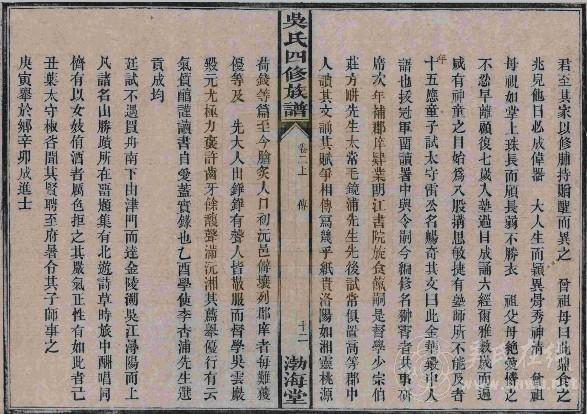 君至其家以修脯持貽醒而言於 曾祖母曰此鼎食之
兆兒他日必成偉器 大人生而穎異骨秀神清 曾祖
母視如掌上珠長而頎長弱不勝衣 祖父母絶愛憐之
不忍早離顧復七歲入塾過目成誦六經爾雅數歲而遍
咸有神童之目始為八股構思敏捷有塾師所不能及者年
十五應童子試太守雷公名暢奇其文曰此金華殿中人
語也拔冠軍留讀署中與令嗣今編修名霄者共事研
席次年補郡庠肄業朗江書院旋食餼嗣是督學少宗伯
莊方畊先生太常毛鏡浦先生先後試常俱置高等郡中
人讀其文誦其賦爭相傳寫幾乎紙貴洛陽如湘靈桃源
吳氏四修族譜 卷二上 傳 十二 渤海堂
荷錢等篇至今膾炙人口初沅邑僻壤列郡庠者每難獲
優等及 先大人出錚錚有聲人皆歛服而督學吳雲巖
殿元尤極力褒許齒牙餘馥聲滿沅湘其薦舉優行有云
氣質醇謹讀書自愛蓋實錄也乙酉學使李杏浦先生選
貢成均
廷試不遇買舟南下由津門而達金陵溯吳江潯陽而上
凡諸名山勝蹟所在留題集有北遊詩草時旅中酬唱同
儕有以女妓侑酒者厲色拒之其嚴氣正性有如此者己
丑葉太守椒杏聞其賢聘至府署命其子師事之
庚寅舉於鄉辛卯成進士